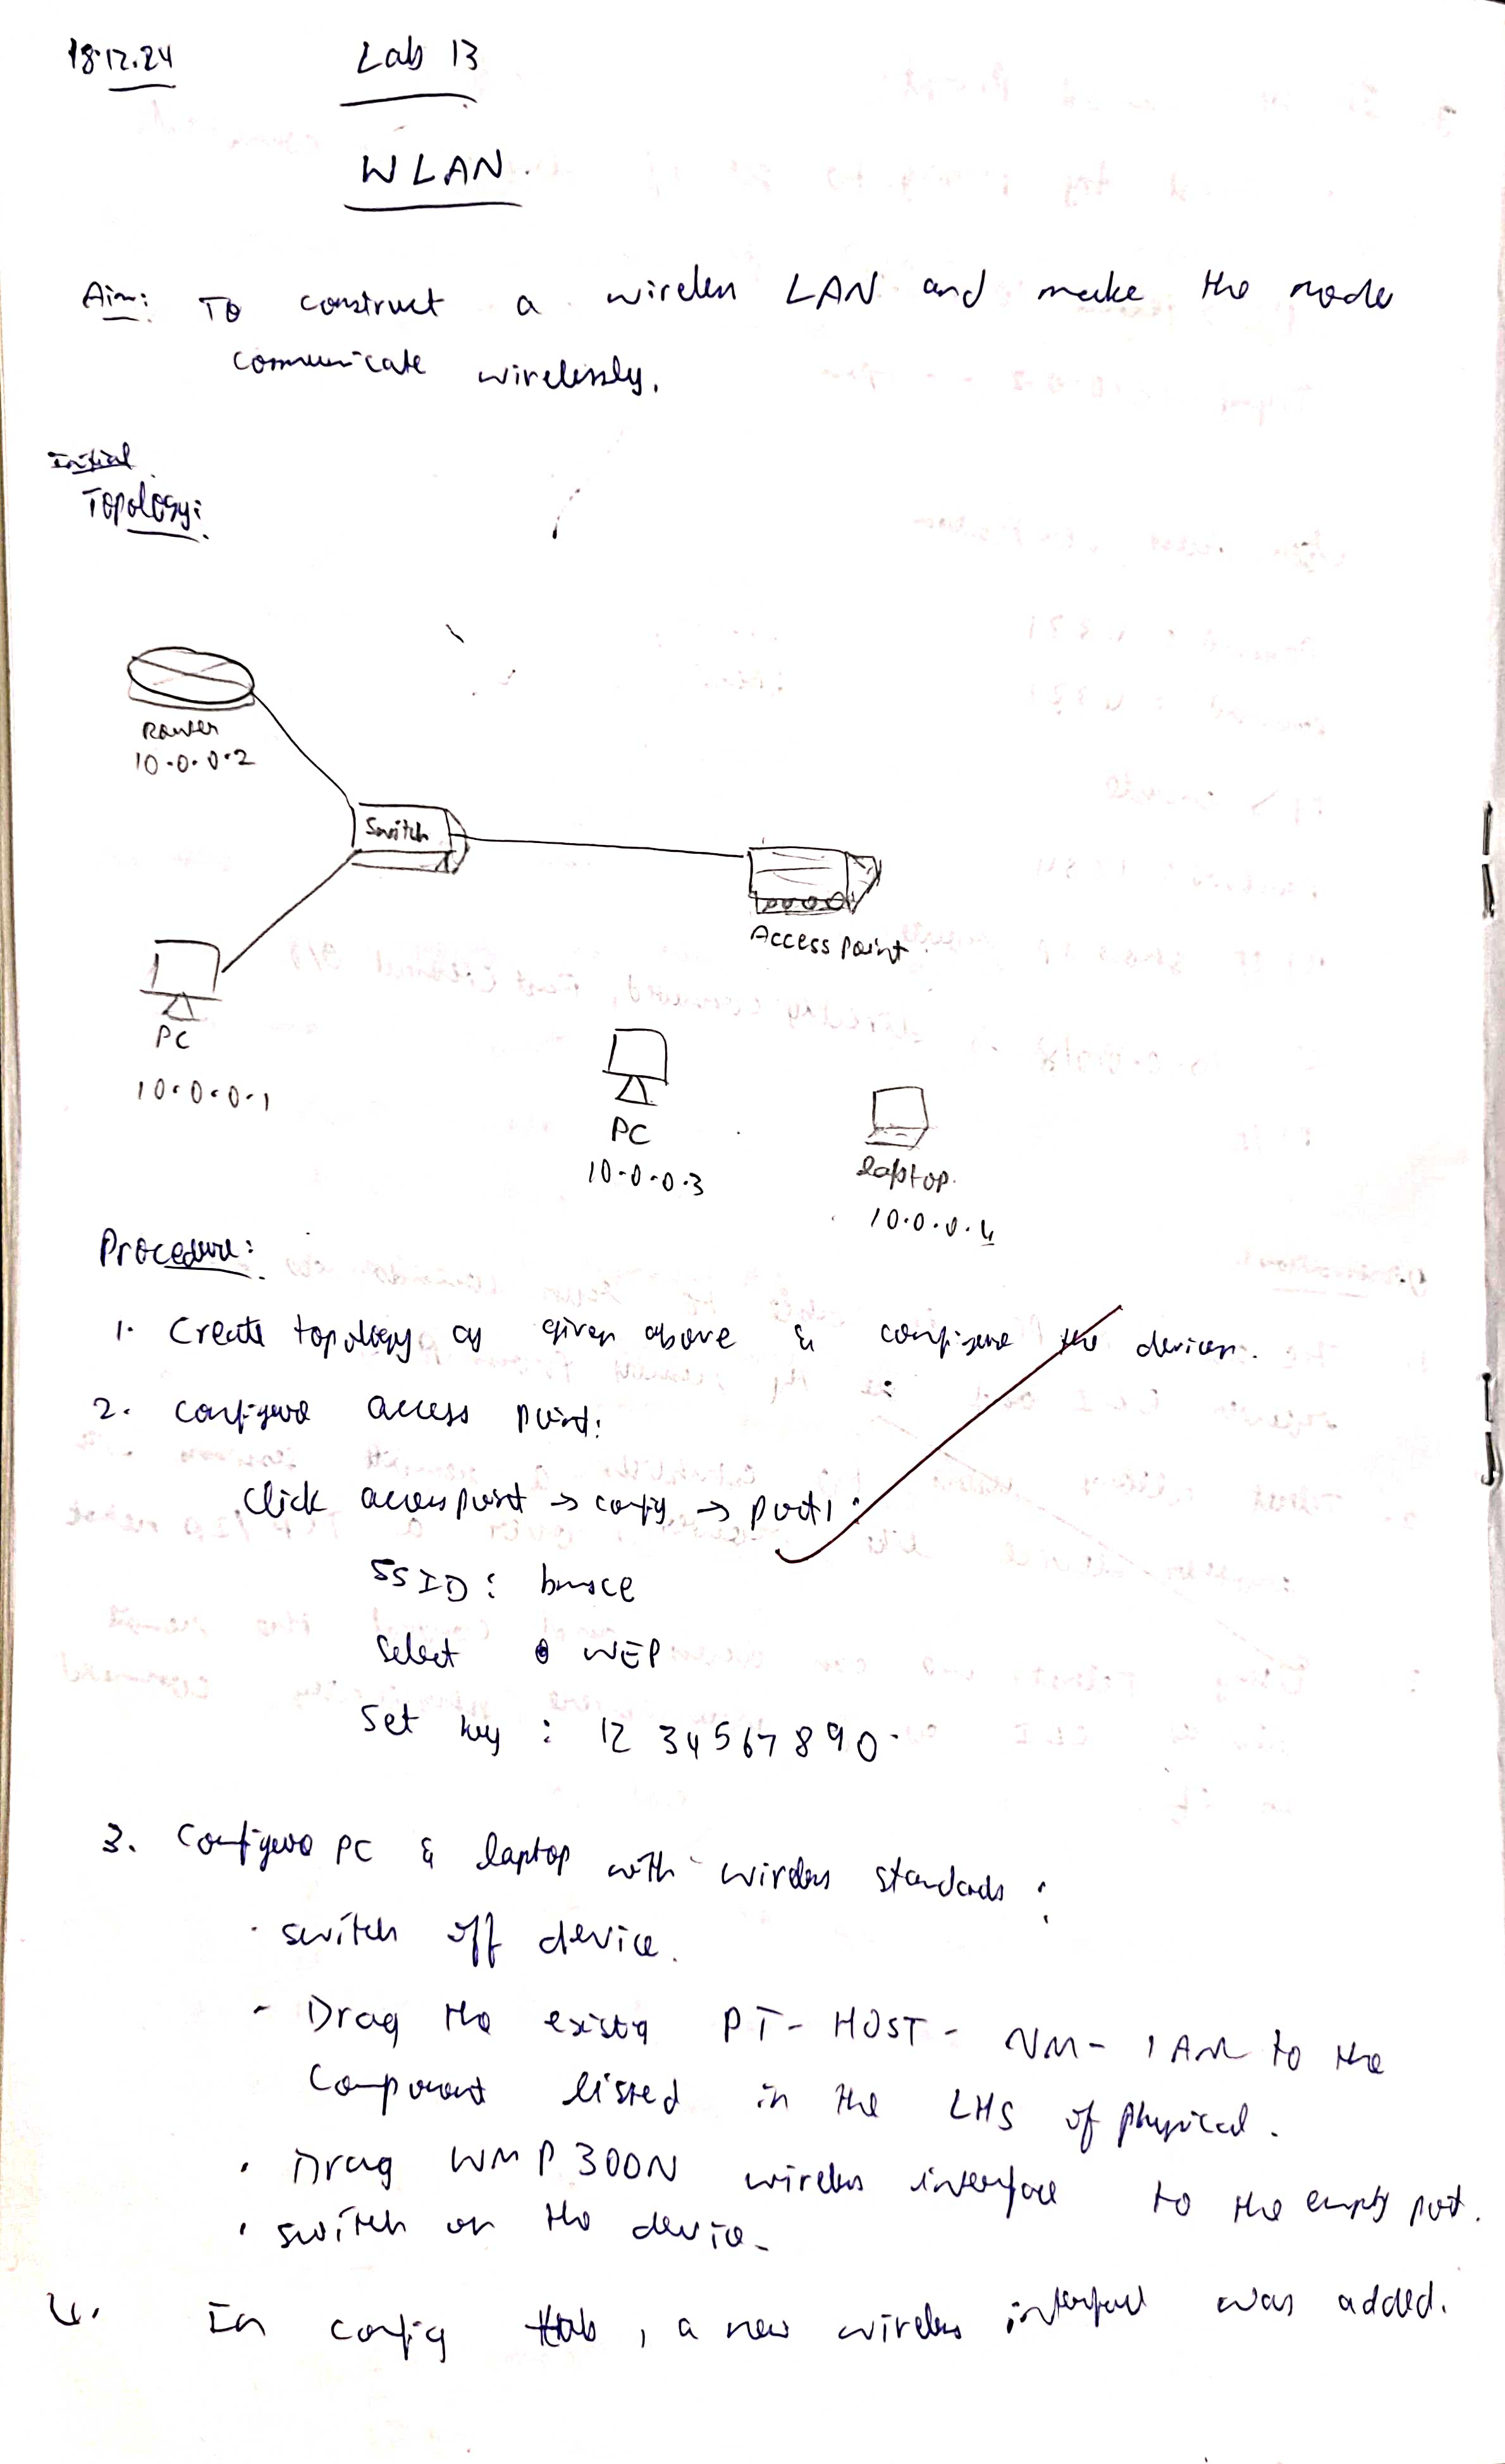 18.12.24
Lab 13
WLAN.
Aim: To construct a wireless LAN and make the nodes
communicate wirelessly.
Initial
Topology:
Router
10.0.0.2
Switch
Access Point
PC
10.0.0.1
PC
10.0.0.3
laptop.
10.0.0.4
Procedure:
1. Create topology as given above & configure the devices.
2. Configure access point:
Click access point → config → port 1:
SSID: bmsce
Select WEP
Set key : 1234567890.
3. Configure PC & laptop with wireless standards :
· switch off device.
- Drag the existing PT-HOST-NM-1AM to the
Component listed in the LHS of physical.
· Drag WMP300N wireless interface to the empty port.
· switch on the device.
4. In config tab, a new wireless interface was added.